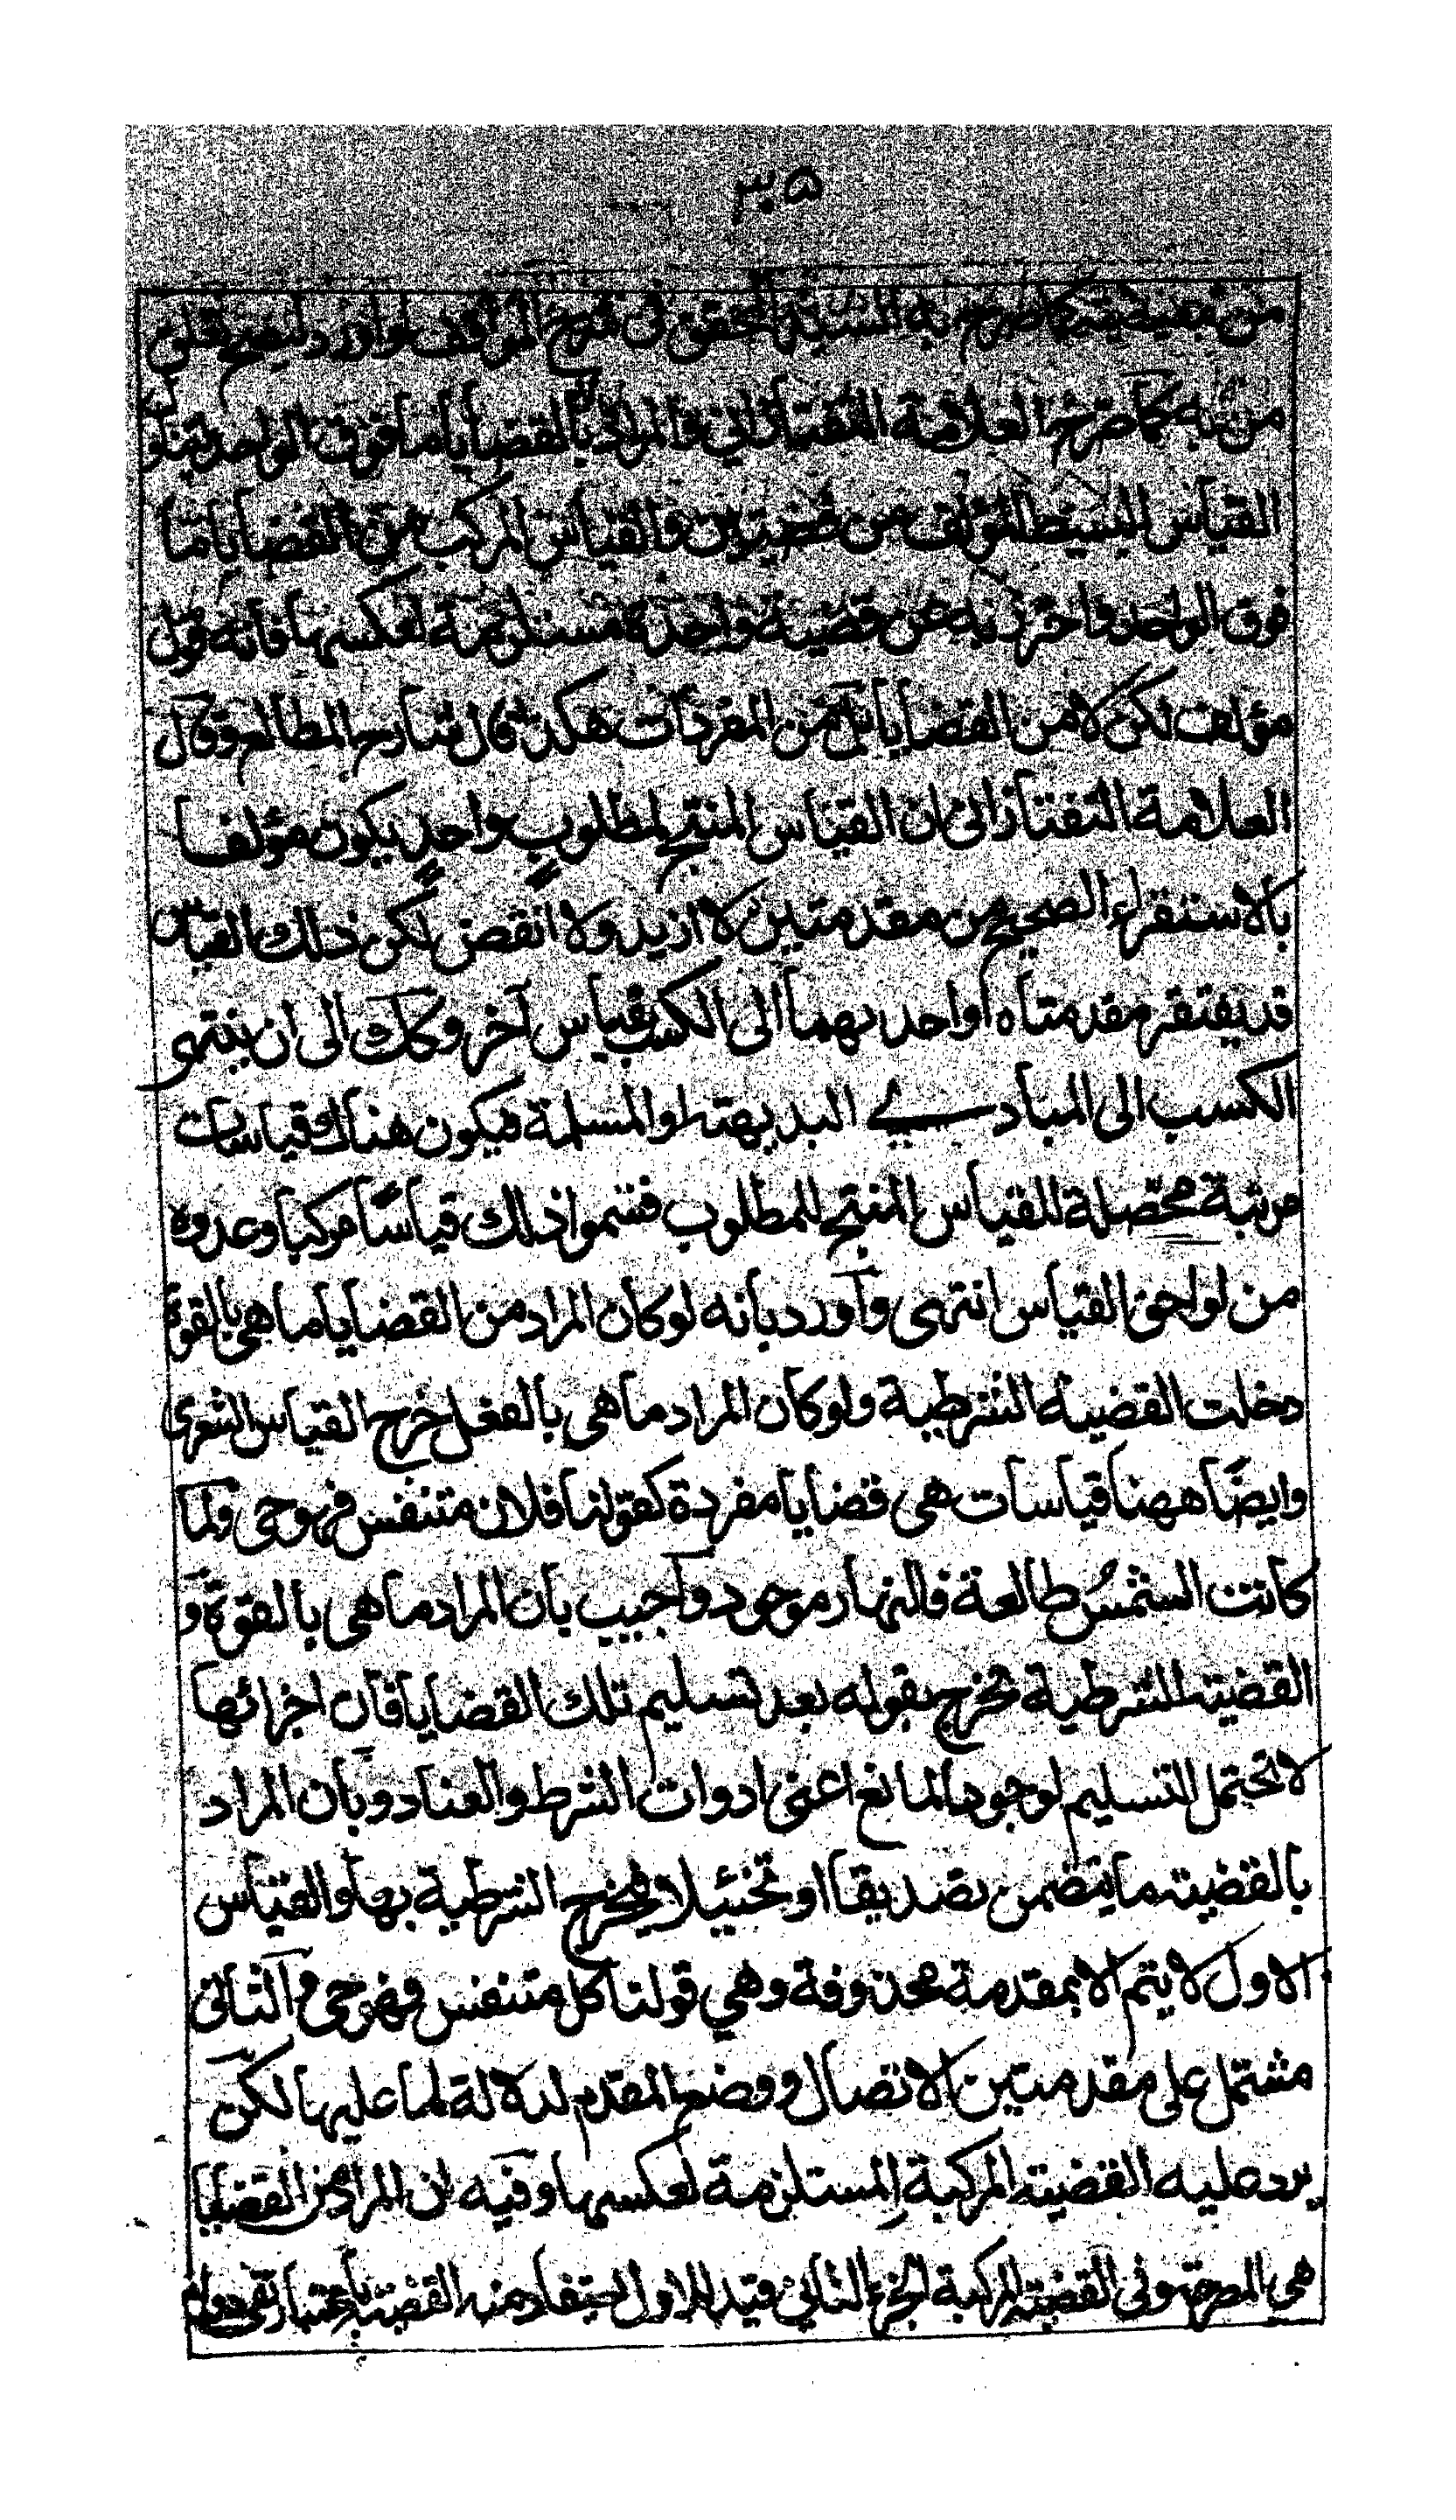 ٣٠٥
من تبعيضية كما صرح به السيد المحقق في شرح المواقف لواورد ليصح تعلق
من به كما صرح العلامة التفتازاني والمراد بالقضايا ما فوق الواحد ليتناول
القياس البسيط المؤلف من قضيتين والقياس المركب من القضايا ما
فوق الواحد واحترز به عن قضية واحدة مستلزمة لعكسها فانه قول
مؤلف لكن لا من القضايا بل من المفردات هكذا قال شارح المطالع وقال
العلامة التفتازانى ان القياس المنتج لمطلوب واحد يكون مؤلفا
بالاستقراء الصحيح من مقدمتين لا ازيد ولا انقص لكن ذلك القياس
قد يفتقر مقدمتاه او احديهما الى الكسب بقياس آخر وكك الى ان ينتهى
الكسب الى المبادي البديهة او المسلمة فيكون هناك قياسات
مرتبة محصلة للقياس المنتج للمطلوب فسموا ذلك قياسا مركبا وعدوه
من لواحق القياس انتهى وأورد بانه لو كان المراد من القضايا ما هى بالقوة
دخلت القضية الشرطية ولو كان المراد ما هى بالفعل خرج القياس الشعرى
وايضا ههنا قياسات هى قضايا مفردة كقولنا فلان متنفس فهو حى ولما
كانت الشمس طالعة فالنهار موجود وأجيب بان المراد ما هى بالقوة و
القضية الشرطية تخرج بقوله بعد تسليم تلك القضايا فان اجزائها
لا تحتمل التسليم لوجود المانع اعنى ادوات الشرط والعناد وبان المراد
بالقضية ما يتضمن تصديقا او تخئيلا فيخرج الشرطية بها والقياس
الاول لا يتم الا بمقدمة محذوفة وهي قولنا كل متنفس فهو حى والثانى
مشتمل على مقدمتين الاتصال ووضع المقدم لدلالة لما عليها لكن
يرد عليه القضية المركبة المستلزمة لعكسها وفيه ان المراد من القضايا
هى المصرحة وفى القضية المركبة الجزء الثانى قيد للاول استفاد منه القضية باعتبار نفى دوام